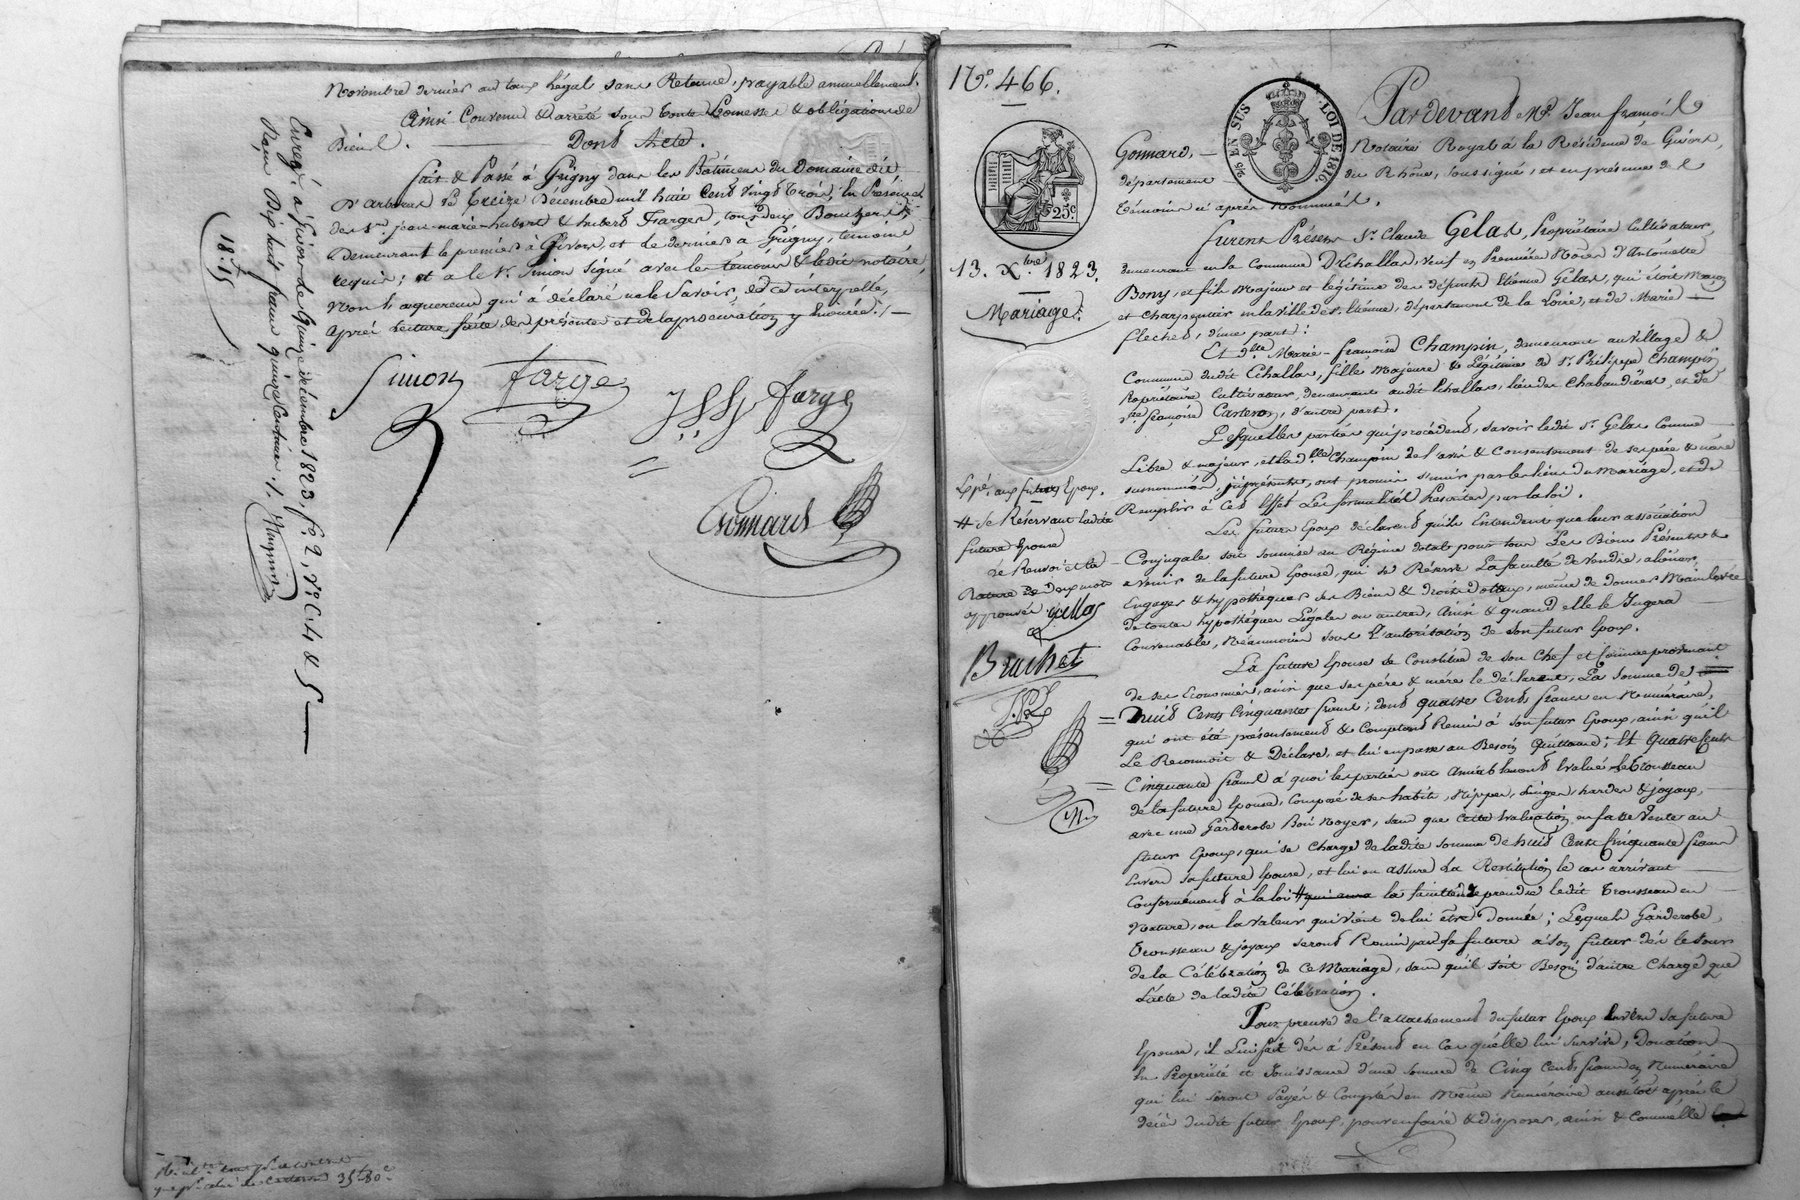 Novembre dernier au taux légal sans Retenue, payable annuellement.
Ainsi Convenu & arrêté sous toute Promesses & obligations de
Bien.
Dont Acte.
fait & Passé à Grigny dans les Bâtimens du Domaine dit
D'arboras le treize Décembre mil huit Cent vingt trois, En Présence
des Srs jean-marie-hubert & hubert Farges, tous deux Bouchers,
demeurant le premier à Givors, et le dernier à Grigny, témoins
requis; et a le Sr Simon signé avec les témoins & ledit notaire,
Non l'acquereur, qui a déclaré ne le Savoir, de ce interpellé,
après Lecture faite des présentes et de la procuration y énoncée ./.
Simon
farge
farge
Gonnard
Enregé. à Givors le quinze décembre 1823, fo. 2, Vo. C. 4 & 5
Reçu Dix huit francs quinze Centimes ./.
18f.15
35f 80c
No. 466.
25c
25 EN SUS
LOI DE 1816
13. Xbre 1823.
Mariage.
Pardevant Me. Jean françois
Gonnard, Notaire Royal à la Résidence de Givors,
département du Rhône, soussigné, et en présence des
témoins ci après Nommés.
furent Présens Sr. Claude Gelas, Propriétaire Cultivateur,
demeurant en la Commune D'Echallas, veuf en Première Noces d'Antoinette
Bony, et fils majeur et légitime des défunts Etienne Gelas, qui étoit Maçon
et Charpentier en la ville de St. Etienne, département de la Loire, et de Marie
flechet, d'une part;
Et dlle Marie-françoise Champin, demeurant au village &
Commune dudit Echallas, fille Majeure & Légitime de Sr. Philippe Champin,
Propriétaire Cultivateur, demeurant audit Echallas, lieu des Chabaudières, et de
françoise Carteron, d'autre part.
Lesquelles parties qui procèdent, savoir ledit Sr. Gelas Comme
Libre & majeur, et lad. dlle Champin de l'avis & Consentement de ses père & mère
susnommés, ont promis s'unir par les liens du Mariage, et de
Remplir à Cet Effet Les formalités Prescrites par la loi.
Les future Epoux déclarent qu'ils Entendent que leur association
Conjugale soit soumise au Régime dotal pour tous Les Biens Présents &
avenir de la future Epouse, qui se Réserve La faculté de vendre, aliéner,
Engager & hypothéquer ses Biens & droits dotaux, même de donner Mainlevée
de toutes hypothéques Légales ou autres, Ainsi & quand elle le Jugera
Convenable, Néanmoins sous L'autorisation de son futur Epoux.
La future Epouse se Constitue de son Chef et Comme provenant
de ses Economies, ainsi que ses père & mère le déclarent, La somme de
huit Cents Cinquante francs; dont quatre Cents francs en Numéraire,
qui ont été présentement & Comptant Remis à son futur Epoux, ainsi qu'il
Le Reconnoit & Déclare, et lui en passe au Besoin Quittance; Et Quatre Cents
Cinquante francs à quoi les parties ont amiablement Evalué le trousseau
de la future Epouse, Composé de ses habits, Nippes, Linges, hardes & joyaux,
avec une Garderobe Bois Noyer, sans que cette Evaluation en fasse Vente au
futur Epoux, qui se Charge de ladite somme de huit Cents Cinquante francs
Envers sa future Epouse, et lui en assure La Restitution le cas arrivant
Conformément à la loi # qui aura la faculté de prendre ledit trousseau en
Nature, ou la valeur qui vient de lui être Donnée; Lesquels Garderobe,
trousseau & joyaux seront Remis par la future à son futur dès le Jour
de la Célébration de Ce Mariage, sans qu'il soit Besoin d'autre Charge que
L'acte de ladite Célébration.
Pour preuve de l'attachement du futur Epoux Envers sa future
Epouse, il Lui fait dès à Présent en Cas qu'elle lui survive, Donation
En Propriété et Jouissance d'une somme de Cinq Cents francs en Numéraire
qui lui seront Payés & Comptés en Même Numéraire aussitôt après le
décès dudit futur Epoux, pour en jouir & disposer, ainsi & Comme Elle
Expé. aux futurs Epoux.
# se Réservant ladite
future Epouse
Le Renvoi et la
Rature de deux mots
approuvés
Bruchet